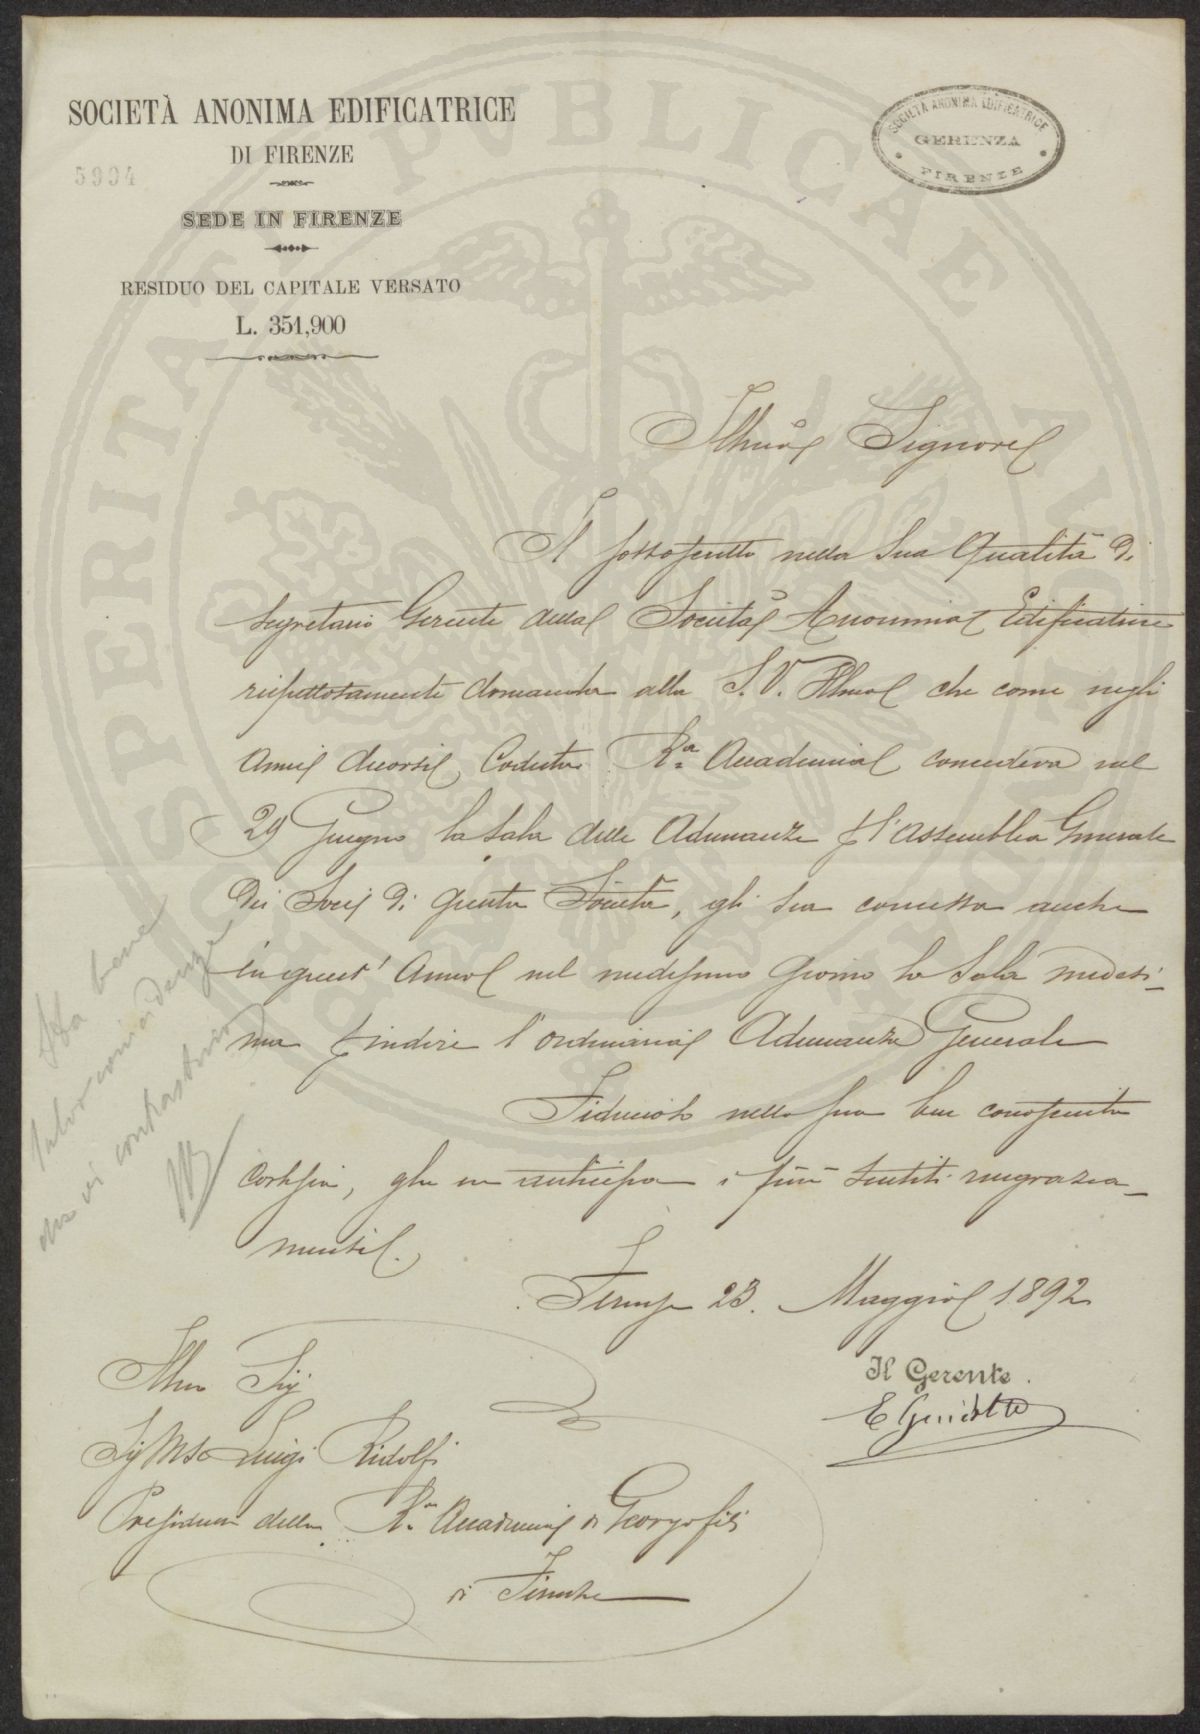 SOCIETÀ ANONIMA EDIFICATRICE
DI FIRENZE
5994
SEDE IN FIRENZE
RESIDUO DEL CAPITALE VERSATO
L. 351,900
SOCIETÀ ANONIMA EDIFICATRICE
GERENZA
FIRENZE
PROSPERITATI PUBLICAE AUGENDAE
Illmo Signore
Il sottoscritto nella Sua Qualità di
Segretario Gerente della Società Anonima Edificatrice
rispettosamente domanda alla S. V. Illma che come negli
Anni decorsi Codesta Ra Accademia concedeva nel
29 Giugno la Sala delle Adunanze p l'Assemblea Generale
dei Soci di questa Società, gli sia concessa anche
in quest'Anno nel medesimo Giorno la Sala medesi-
ma p indire l'ordinaria Adunanza Generale
Fiducioso nella sua ben conosciuta
cortesia, gliene anticipa i più sentiti ringrazia-
menti.
Firenze 23. Maggio 1892
Il Gerente.
E Guidotti
Illmo Sig
Sig Mse Luigi Ridolfi
Presidente della Ra Accademia di Georgofili
di Firenze
Sta bene
salvo coincidenze
che vi contrastino